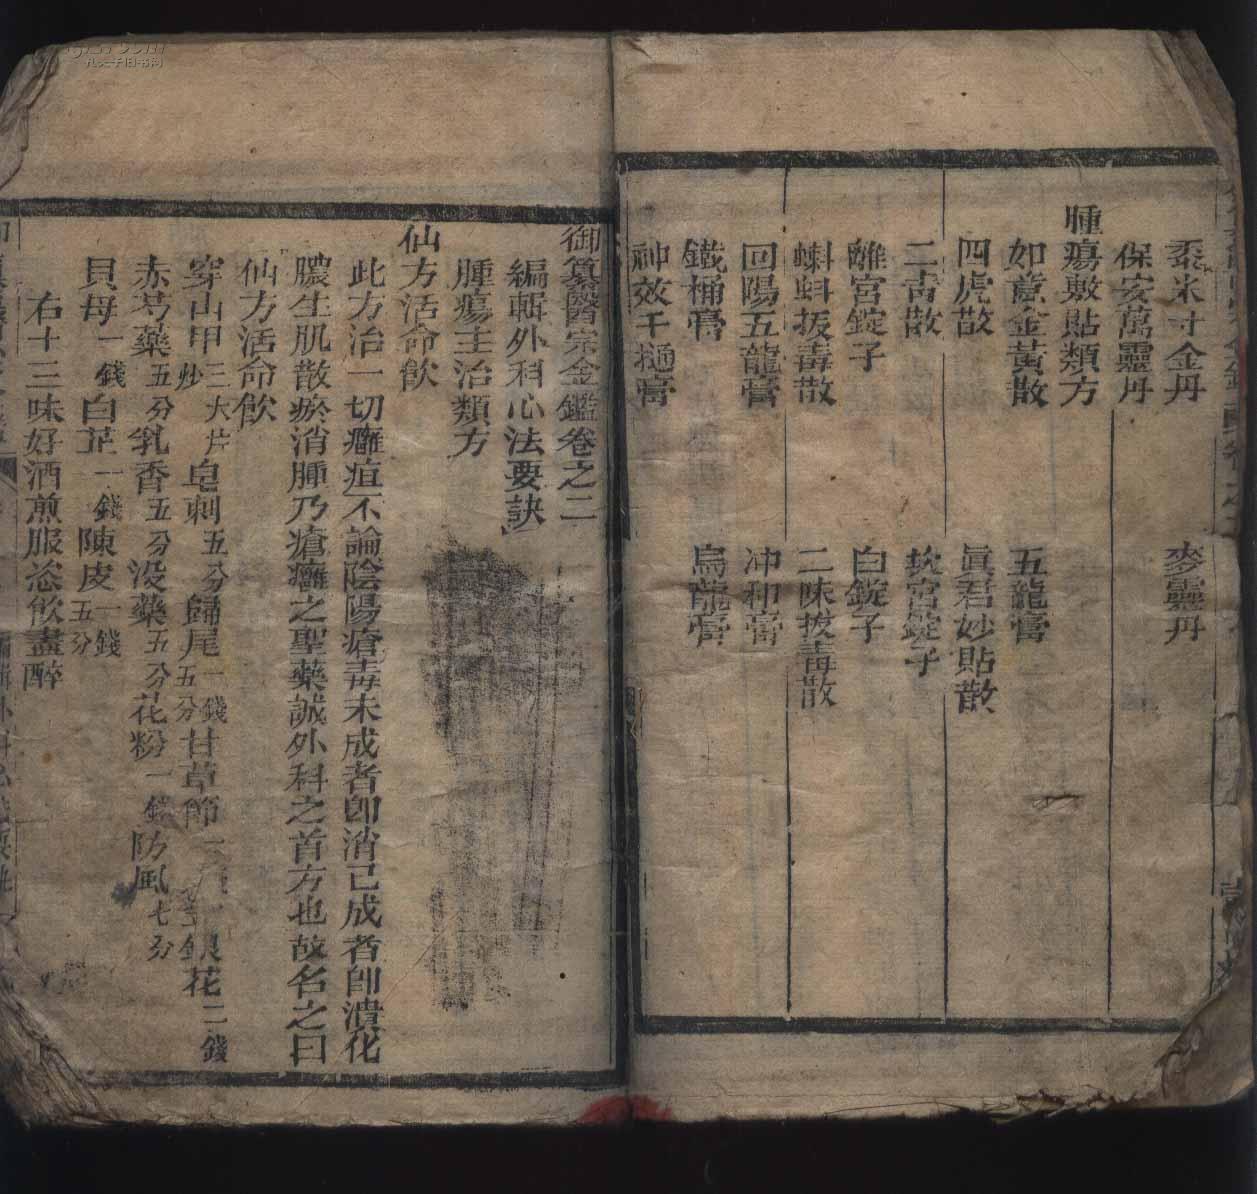 黍米寸金丹 麥靈丹
保安萬靈丹
腫瘍敷貼類方
如意金黃散 五龍膏
四虎散 眞君妙貼散
二青散 坎宮錠子
離宮錠子 白錠子
蝌蚪拔毒散 二味拔毒散
回陽五龍膏 冲和膏
鐵桶膏 烏龍膏
神效千搥膏
御纂醫宗金鑑卷之二
編輯外科心法要訣
腫瘍主治類方
仙方活命飲
此方治一切癰疽不論陰陽瘡毒未成者卽消已成者卽潰化
膿生肌散瘀消腫乃瘡癰之聖藥誠外科之首方也故名之曰
仙方活命飲
穿山甲炒三大片皂刺五分歸尾一錢五分甘草節一錢銀花二錢
赤芍藥五分乳香五分没藥五分花粉一錢防風七分
貝母一錢白芷一錢陳皮一錢五分
右十三味好酒煎服恣飲盡醉